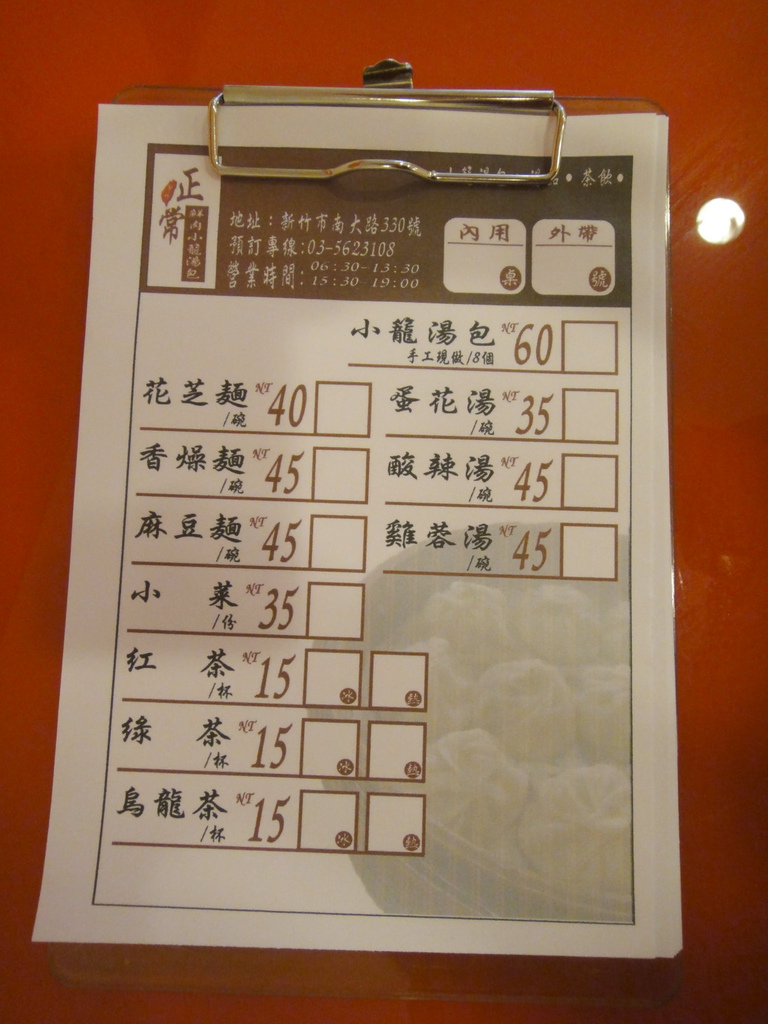 茶飲
正常
鮮肉小籠湯包
地址：新竹市南大路330號
預訂專線:03-5623108
營業時間:06:30-13:30
15:30-19:00
內用
桌
外帶
號
小籠湯包 NT 60
手工現做/8個
花芝麵 /碗 NT 40
蛋花湯 /碗 NT 35
香燥麵 /碗 NT 45
酸辣湯 /碗 NT 45
麻豆麵 /碗 NT 45
雞蓉湯 /碗 NT 45
小菜 /份 NT 35
紅茶 /杯 NT 15 冰 熱
綠茶 /杯 NT 15 冰 熱
烏龍茶 /杯 NT 15 冰 熱